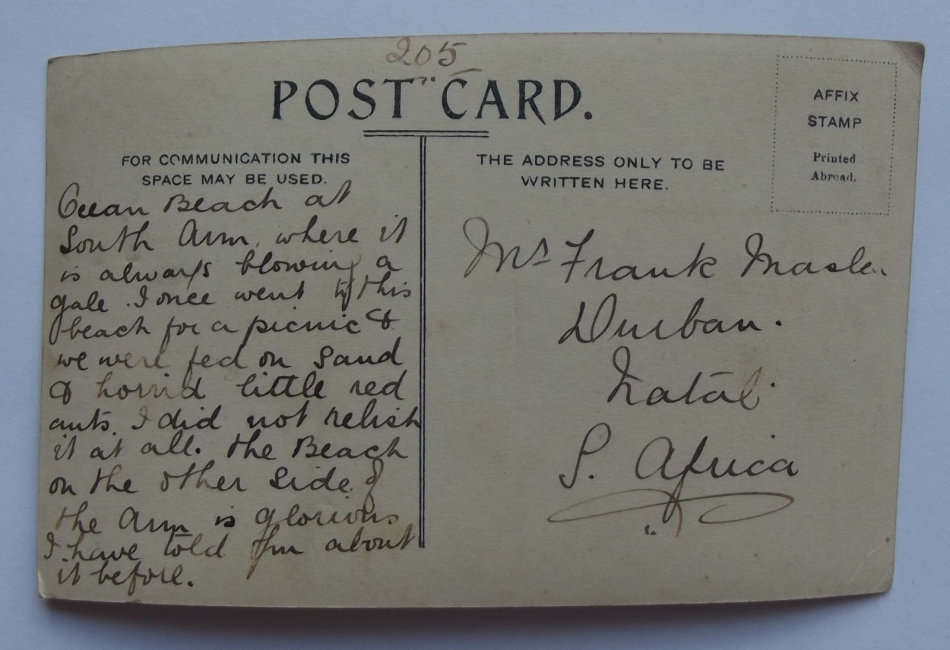 205
POST CARD.
AFFIX
STAMP
Printed
Abroad.
FOR COMMUNICATION THIS
SPACE MAY BE USED.
THE ADDRESS ONLY TO BE
WRITTEN HERE.
Ocean Beach at
South Arm, where it
is always blowing a
gale. I once went to this
beach for a picnic &
we were fed on sand
& horrid little red
ants. I did not relish
it at all. The Beach
on the other side of
the Arm is glorious
I have told you about
it before.
Frank
Durban.
Natal
S. Africa